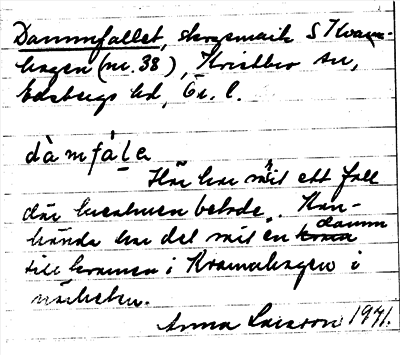 Dammfallet, skogsmark S Kvarn-
hagen (nr. 38), Kristbro sn,
Edsbergs hd, Ör. l.
dàmfála
Här har varit ett fall
där kreaturen betade. Kan-
hända har det varit en damm
till kvarnen i Kvarnhagen i
närheten.
Anna Larsson 1941.